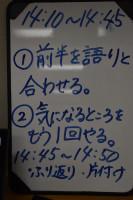 14:10～14:45
①前半を語りと
合わせる。
②気になるところを
もう1回やる。
14:45～14:50
ふり返り・片付け